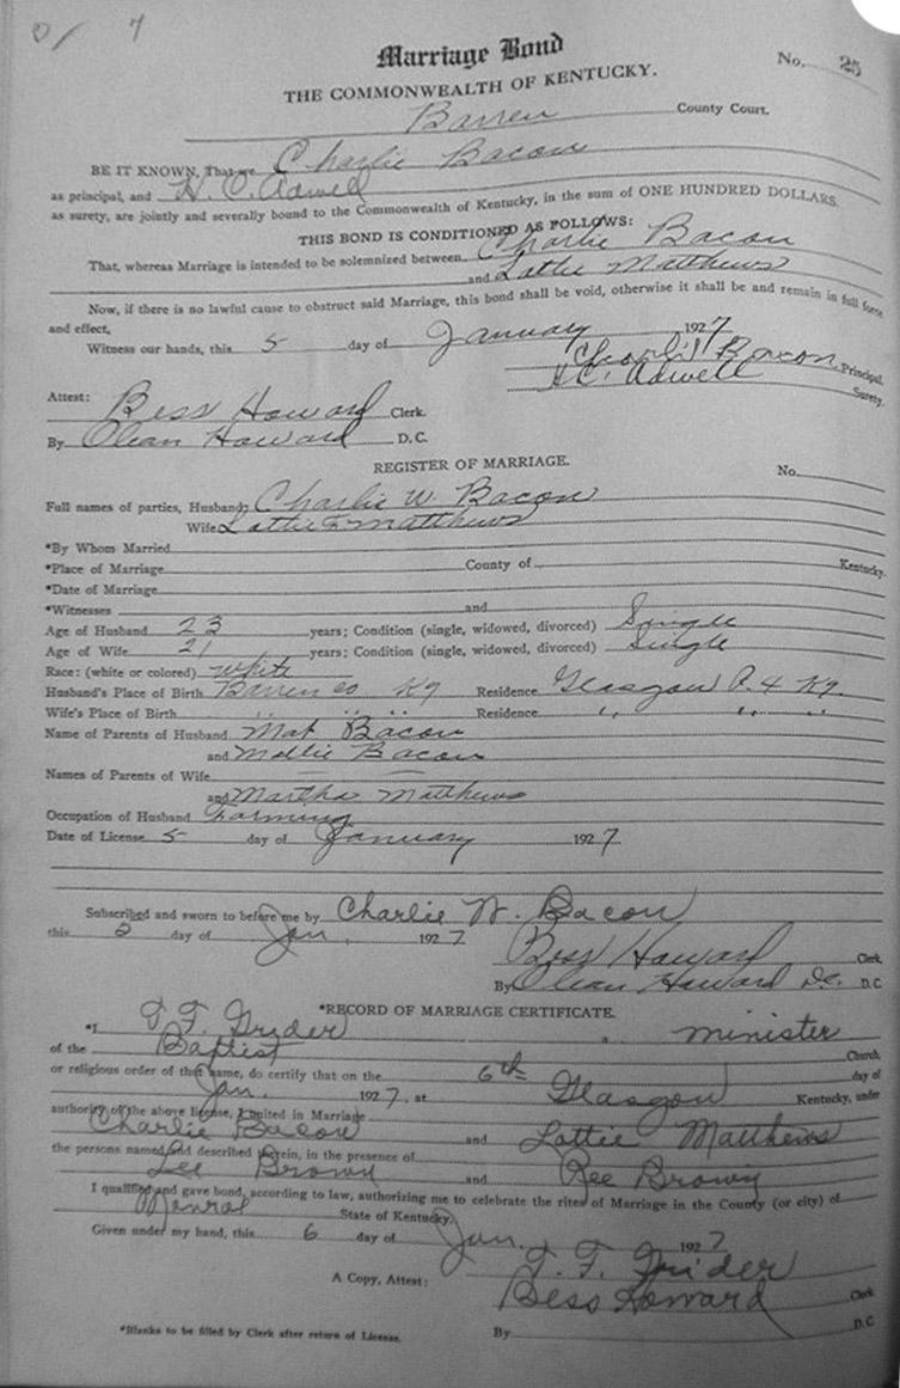 Marriage Bond
No. 25
THE COMMONWEALTH OF KENTUCKY.
Barren County Court.
BE IT KNOWN, That we Charlie Bacon
as principal, and H. C. Adwell
as surety, are jointly and severally bound to the Commonwealth of Kentucky, in the sum of ONE HUNDRED DOLLARS.
THIS BOND IS CONDITIONED AS FOLLOWS:
That, whereas Marriage is intended to be solemnized between Charlie Bacon
and Lottie Matthews
Now, if there is no lawful cause to obstruct said Marriage, this bond shall be void, otherwise it shall be and remain in full force
and effect.
Witness our hands, this 5 day of January 1927
Charlie Bacon Principal.
H C. Adwell Surety.
Attest: Bess Howard Clerk.
By Olean Howard D. C.
REGISTER OF MARRIAGE.
No.
Full names of parties, Husband: Charlie W. Bacon
Wife Lottie Matthews
*By Whom Married
*Place of Marriage County of Kentucky.
*Date of Marriage
*Witnesses and
Age of Husband 23 years; Condition (single, widowed, divorced) Single
Age of Wife 21 years; Condition (single, widowed, divorced) Single
Race: (white or colored) white
Husband's Place of Birth Barren co Ky Residence Glasgow R. 4 Ky.
Wife's Place of Birth " " " Residence " " "
Name of Parents of Husband Mat Bacon
and Mollie Bacon
Names of Parents of Wife — —
and Martha Matthews
Occupation of Husband Farming
Date of License 5 day of January 1927
Subscribed and sworn to before me by Charlie W. Bacon
this 5 day of Jan. 1927
Bess Howard Clerk
By Olean Howard D.C. D.C
*RECORD OF MARRIAGE CERTIFICATE.
*I T. F. Grider , minister
of the Baptist Church,
or religious order of that name, do certify that on the 6th day of
Jan. 1927, at Glasgow Kentucky, under
authority of the above license, I united in Marriage
Charlie Bacon and Lottie Matthews
the persons named and described herein, in the presence of
Lee Brown and Ree Brown
I qualified and gave bond, according to law, authorizing me to celebrate the rites of Marriage in the County (or city) of
Monroe State of Kentucky.
Given under my hand, this 6 day of Jan. 1927
T. F. Grider
A Copy, Attest: Bess Howard Clerk
By D.C
*Blanks to be filled by Clerk after return of License.